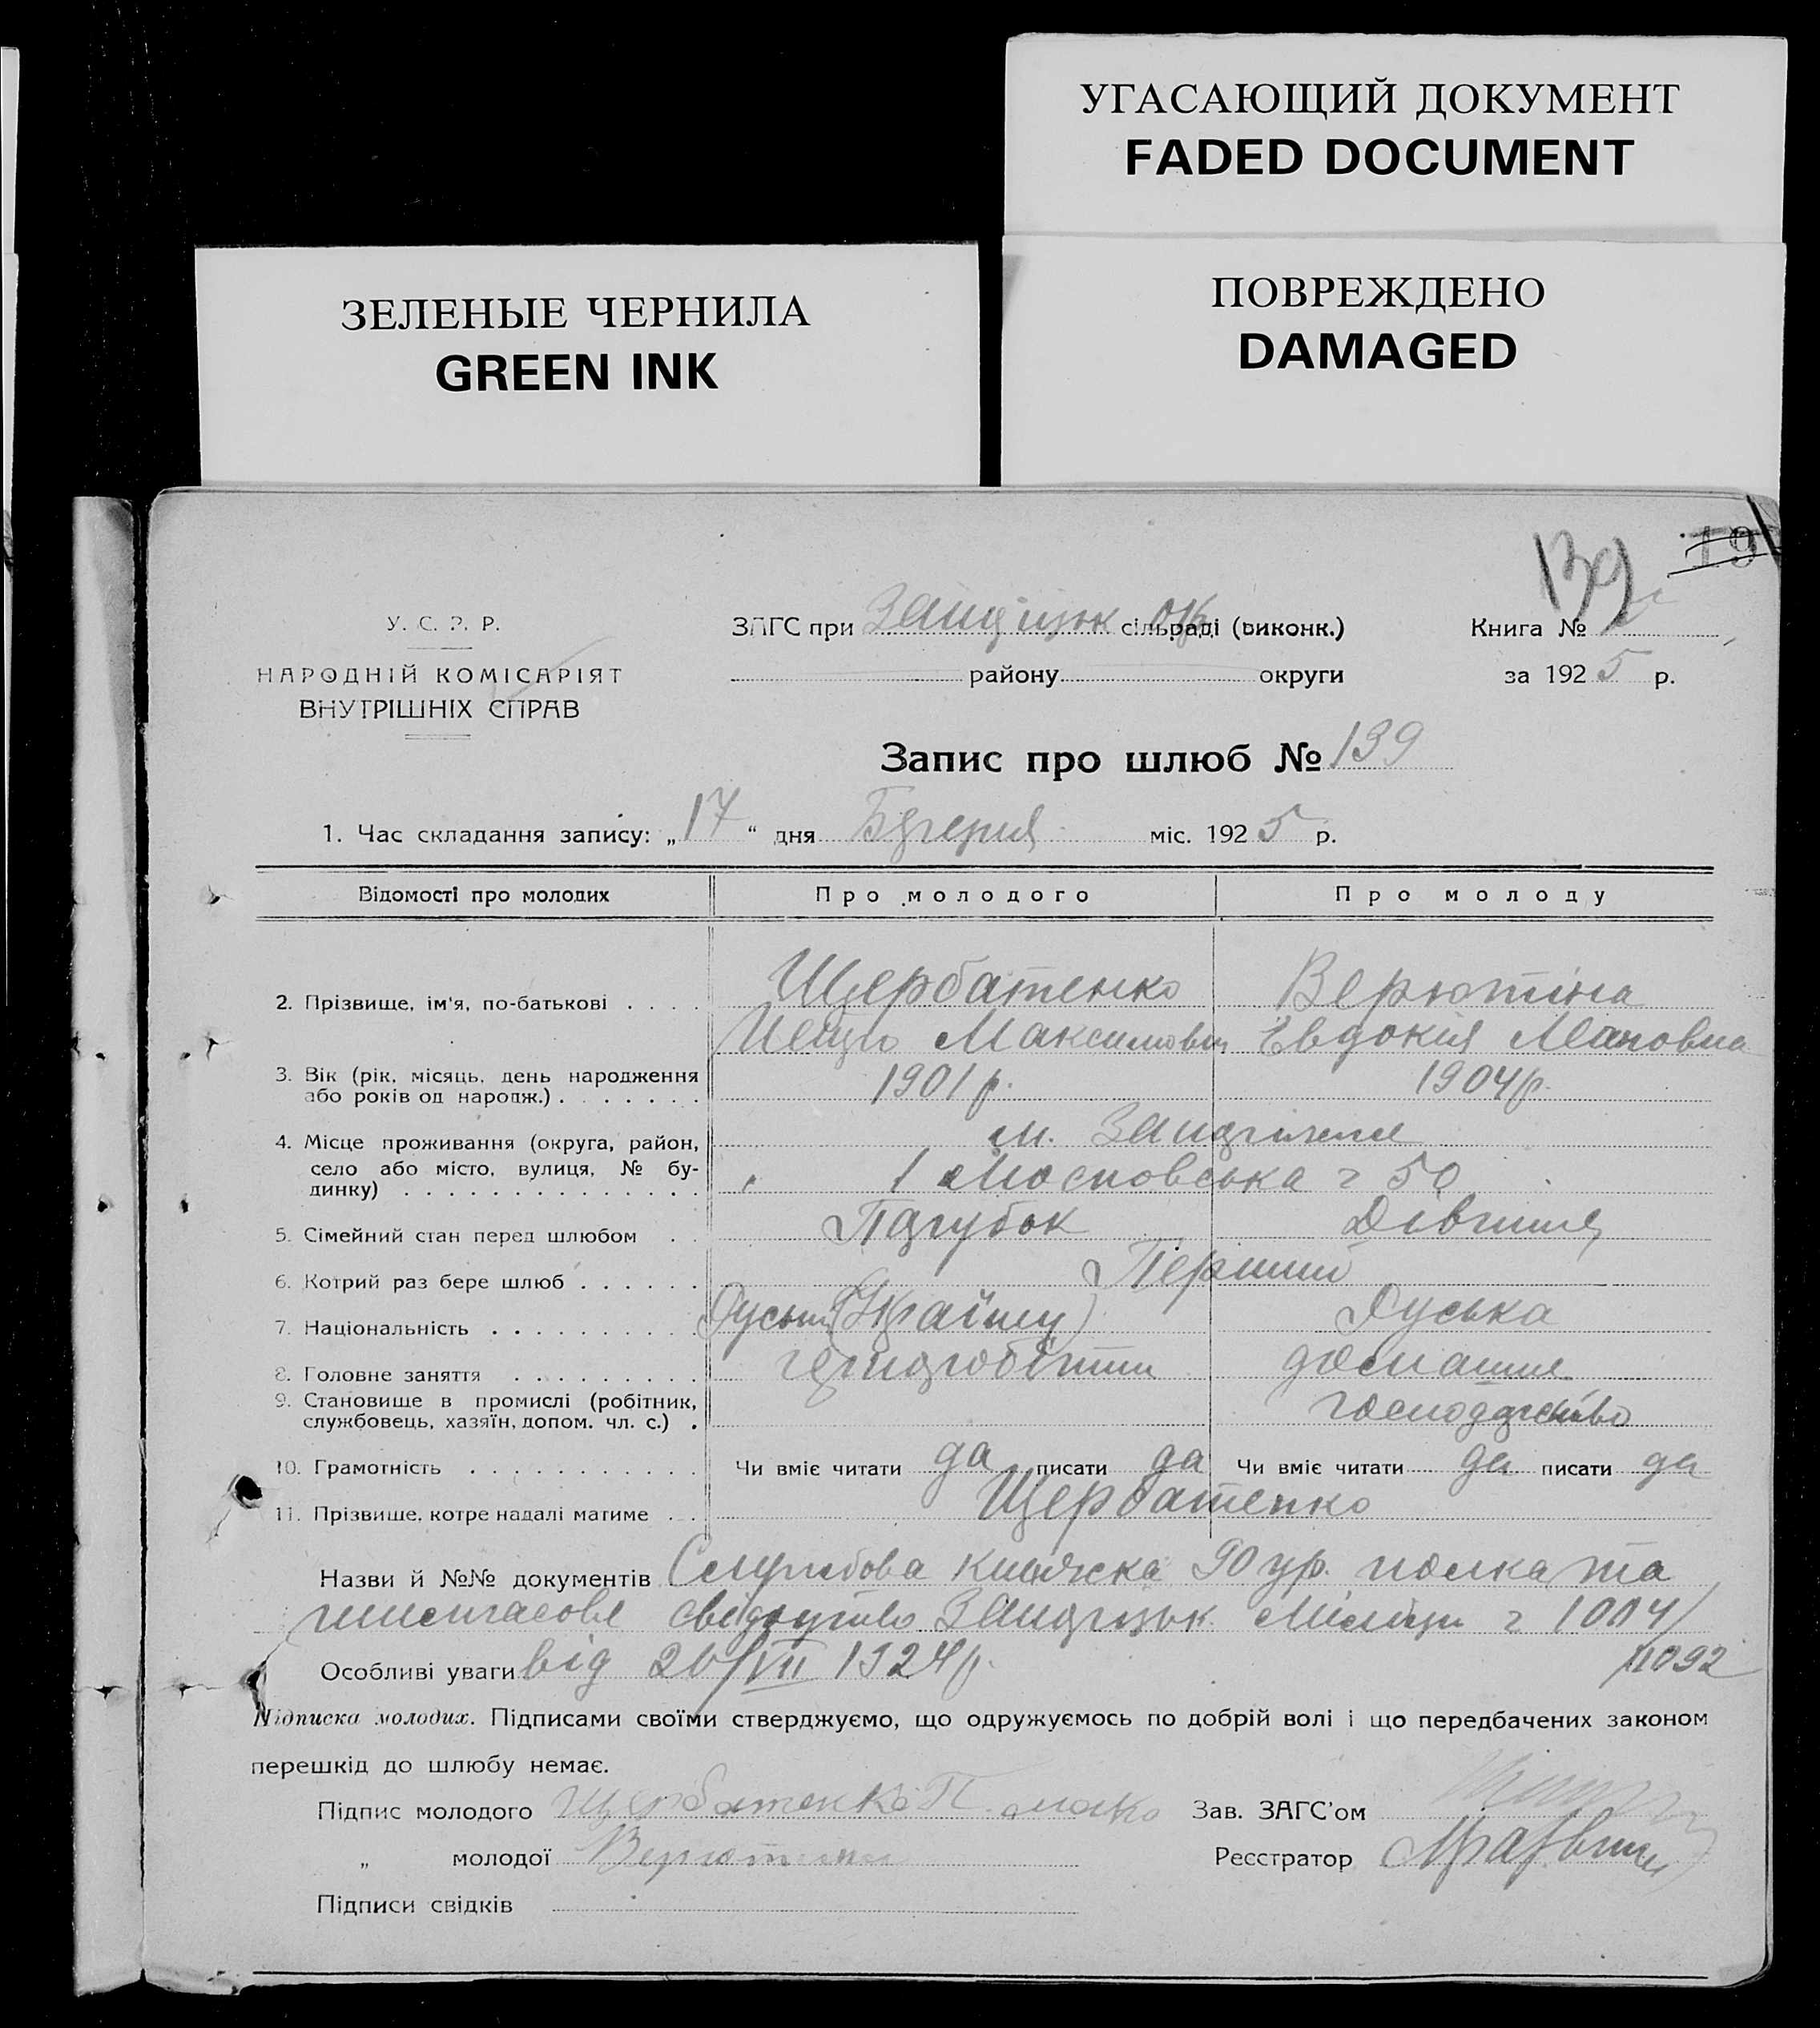 УГАСАЮЩИЙ ДОКУМЕНТ
FADED DOCUMENT
ЗЕЛЕНЫЕ ЧЕРНИЛА
GREEN INK
ПОВРЕЖДЕНО
DAMAGED
139 19
У. С. Р. Р.
НАРОДНІЙ КОМІСАРІЯТ
ВНУТРІШНІХ СПРАВ
ЗАГС при сільраді (виконк.)
району округи
Книга №
за 1925 р.
Запис про шлюб № 139
1. Час складання запису: „17“ дня міс. 1925 р.
Відомості про молодих Про молодого Про молоду
2. Прізвище, ім'я, по-батькові Щербатенко Верютіна
Максимович Евдокія
3. Вік (рік, місяць, день народження
або років од народж.) 1901 р. 1904 р.
4. Місце проживання (округа, район,
село або місто, вулиця, № будинку) м.
1 Московська 50
5. Сімейний стан перед шлюбом Парубок Дівчина
6. Котрий раз бере шлюб Перший
7. Національність Руська
8. Головне заняття домашне
9. Становище в промислі (робітник,
службовець, хазяїн, допом. чл. с.) господарство
10. Грамотність Чи вміє читати да писати да Чи вміє читати да писати да
11. Прізвище, котре надалі матиме Щербатенко
Назви й №№ документів Службова книжка 90 полка та
тимчасове свідоцтво 1014/
Особливі уваги від 1924 р. 11092
Підписка молодих. Підписами своїми стверджуємо, що одружуємось по добрій волі і що передбачених законом
перешкід до шлюбу немає.
Підпис молодого Щербатенко П Зав. ЗАГС'ом
„ молодої Верютина Реєстратор
Підписи свідків